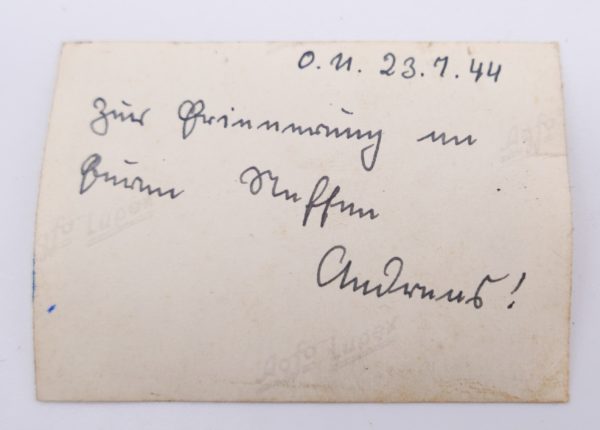 O.U. 23.7.44
Zur Erinnerung an
Euren Neffen
Andreas!
Agfa Lupex
Agfa Lupex
Agfa